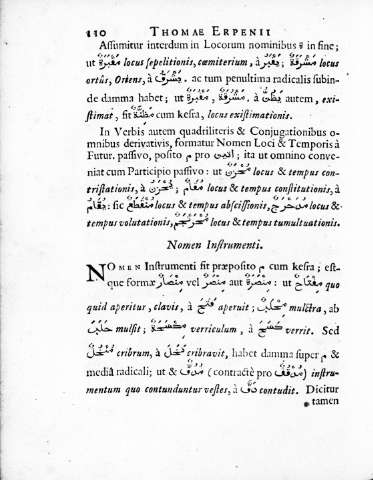 110 THOMAE ERPENII
Aſſumitur interdum in Locorum nominibus ة in fine;
ut مَقْبَرَةٌ locus ſepelitionis, cœmiterium, à يَقْبُرُ; مَشْرَقَةٌ locus
ortûs, Oriens, à يَشْرُقُ. ac tum penultima radicalis ſubin-
de damma habet; ut مَقْبُرَةٌ, مَشْرُقَةٌ. à يَظُنُّ autem, exi-
ſtimat, fit مَظِنَّةٌ cum keſra, locus exiſtimationis.
In Verbis autem quadriliteris & Conjugationibus o-
mnibus derivativis, formatur Nomen Loci & Temporis à
Futur. paſſivo, poſito م pro ; ita ut omnino conve-
niat cum Participio paſſivo: ut locus & tempus con-
triſtationis, à ; مُقَامٌ locus & tempus conſtitutionis, à
يُقَامُ: ſic مُنْقَطَعٌ locus & tempus abſciſſionis, مُدَحْرَجٌ locus &
tempus volutationis, locus & tempus tumultuationis.
Nomen Inſtrumenti.
NOMEN Inſtrumenti fit præpoſito م cum keſra; eſt-
que formæ مِنْصَارٌ vel مِنْصَرٌ aut مِنْصَرَةٌ: ut مِفْتَاحٌ quo
quid aperitur, clavis, à فَتَحَ aperuit; مِحْلَبٌ mulctra, ab
حَلَبَ mulſit; مِكْسَحَةٌ verriculum, à كَسَحَ verrit. Sed
مُنْخُلٌ cribrum, à نَخَلَ cribravit, habet damma ſuper م &
mediâ radicali; ut & مُدُقٌّ (contractè pro مُدْقُقٌ) inſtru-
mentum quo contunduntur veſtes, à دَقَّ contudit. Dicitur
tamen